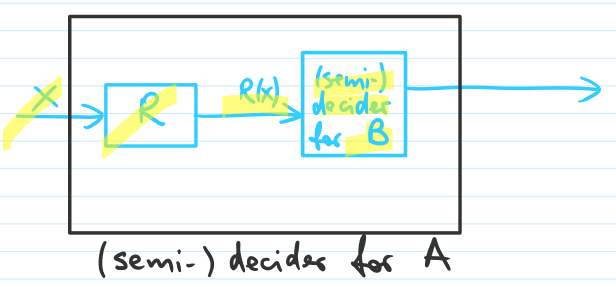 X
R
R(x)
(semi-)
decider
for B
(semi-) decider for A